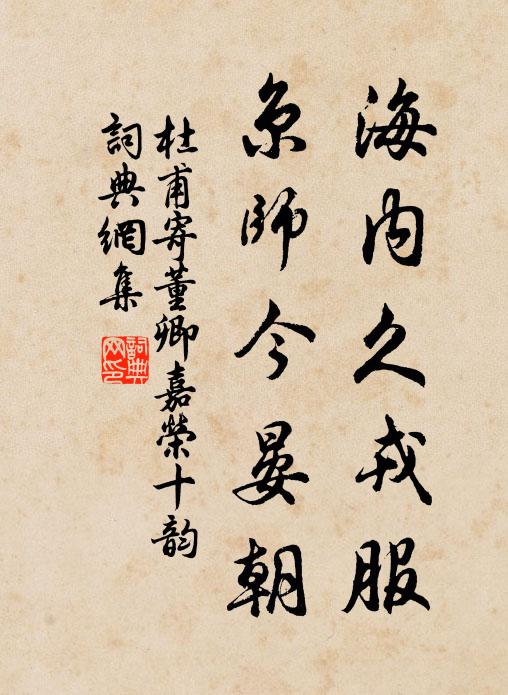 海内久戎服
京師今晏朝
杜甫寄董卿嘉榮十韵
詞典網集
詞典网印